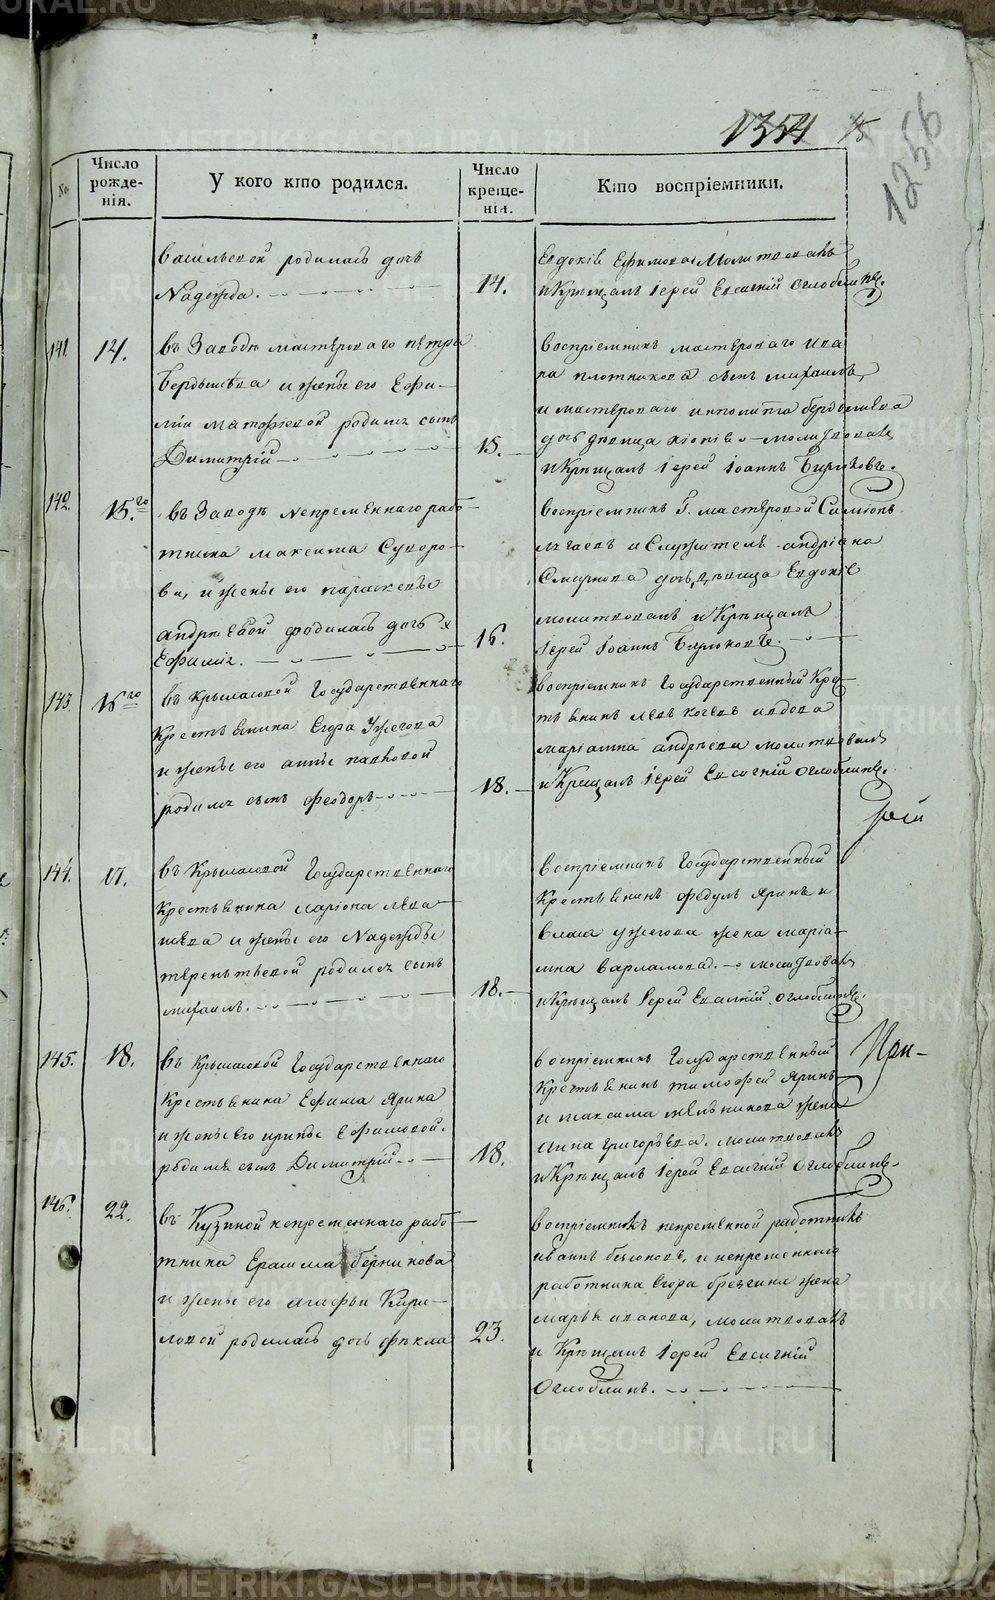 1354
1256
№
Число рожденія.
У кого кто родился.
Число крещенія.
Кто воспріемники.
васильевой родилась дочь
Надежда.
14.
Евдокія Ефимова Молитвовалъ
и Крещалъ Іерей Евсигній Оглоблинъ.
141.
14.
въ Заводѣ мастероваго петра
Бердышева и жены его Ефи-
міи матфіевой родился сынъ
Димитрій
15.
воспріемникъ мастероваго ива
на плотникова сынъ михаилъ,
и мастероваго ипполита бердышева
дочь девица хіонія молитвовалъ
и Крещалъ Іерей Іоаннъ Бирюковъ.
142.
15.го
въ Заводѣ Непременнаго рабо-
тника максима Суворо-
ва, и жены его параскевы
андреевой родилась дочь
Ефимія.
16.
воспріемникъ Г. мастеровой Симіонъ
и Служителя андріана
Смирнова дочь девица Евдокія
молитвовалъ и Крещалъ
Іерей Іоаннъ Бирюковъ.
143.
16го
въ Крыласовой Государственнаго
Крестьянина Егора Ужегова
и жены его анны павловой
родился сынъ феодоръ
18.
воспріемникъ Государственный Кре-
стьянинъ левъ вдова
маріамна андреева молитвовалъ
и Крещалъ Іерей Евсигній Оглоблинъ.
144.
17.
въ Крыласовой Государственнаго
Крестьянина ларіона лева-
шева и жены его Надежды
терентьевой родился сынъ
михаилъ.
18.
воспріемникъ Государственный
Крестьянинъ федулъ Яринъ и
власа ужегова жена маріа-
мна варламова. молитвовалъ
и Крещалъ Іерей Евсигній Оглоблинъ.
145.
18.
въ Крыласовой Государственнаго
Крестьянина Ефима Ярина
и жены его ирины Ефимовой.
родился сынъ Димитрій
18.
воспріемникъ Государственный
Крестьянинъ тимофей Яринъ
и максима мельникова жена
анна григорьева. молитвовалъ
и Крещалъ Іерей Евсигній Оглоблинъ.
При-
146.
22.
въ Кузиной непременнаго рабо-
тника Ерасима берникова
и жены его агафьи Кири-
ловой родилась дочь фекла
23.
воспріемникъ непременной работникъ
иваннъ и непременнаго
работника Егора жена
марья иванова, молитвовалъ
и Крещалъ Іерей Евсигній
Оглоблинъ.
METRIKI.GASO-URAL.RU